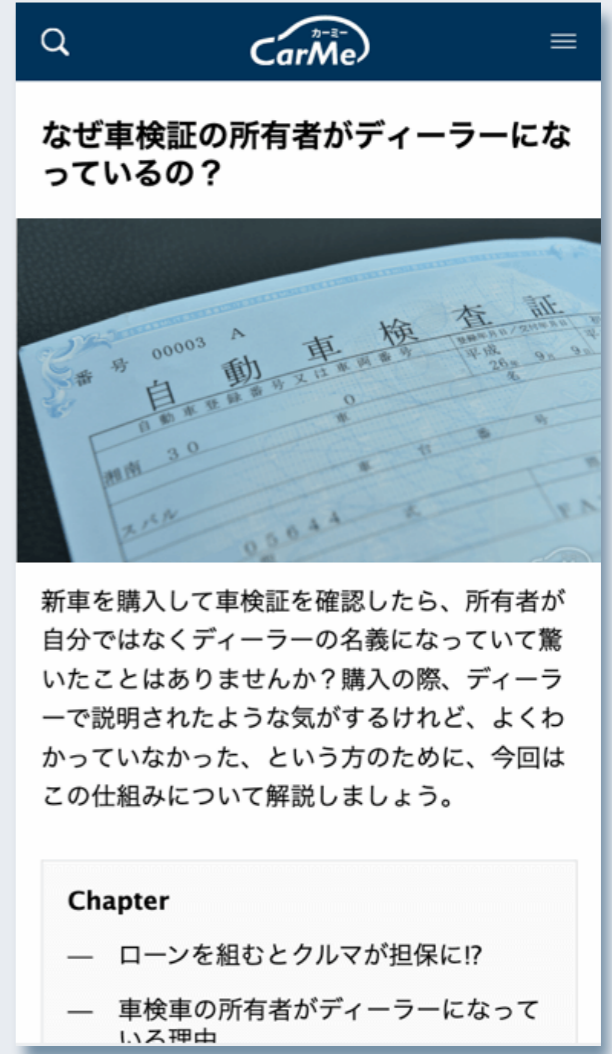 カーミー
CarMe
なぜ車検証の所有者がディーラーにな
っているの？
番号 00003 A
自動車検査証
自動車登録番号又は車両番号
登録年月日／交付年月日
平成
26年 9月 9日
湘南 30 0
名
車
車台番号
スバル
05644
式
FA
新車を購入して車検証を確認したら、所有者が
自分ではなくディーラーの名義になっていて驚
いたことはありませんか？購入の際、ディーラ
ーで説明されたような気がするけれど、よくわ
かっていなかった、という方のために、今回は
この仕組みについて解説しましょう。
Chapter
— ローンを組むとクルマが担保に!?
— 車検車の所有者がディーラーになって
いる理由